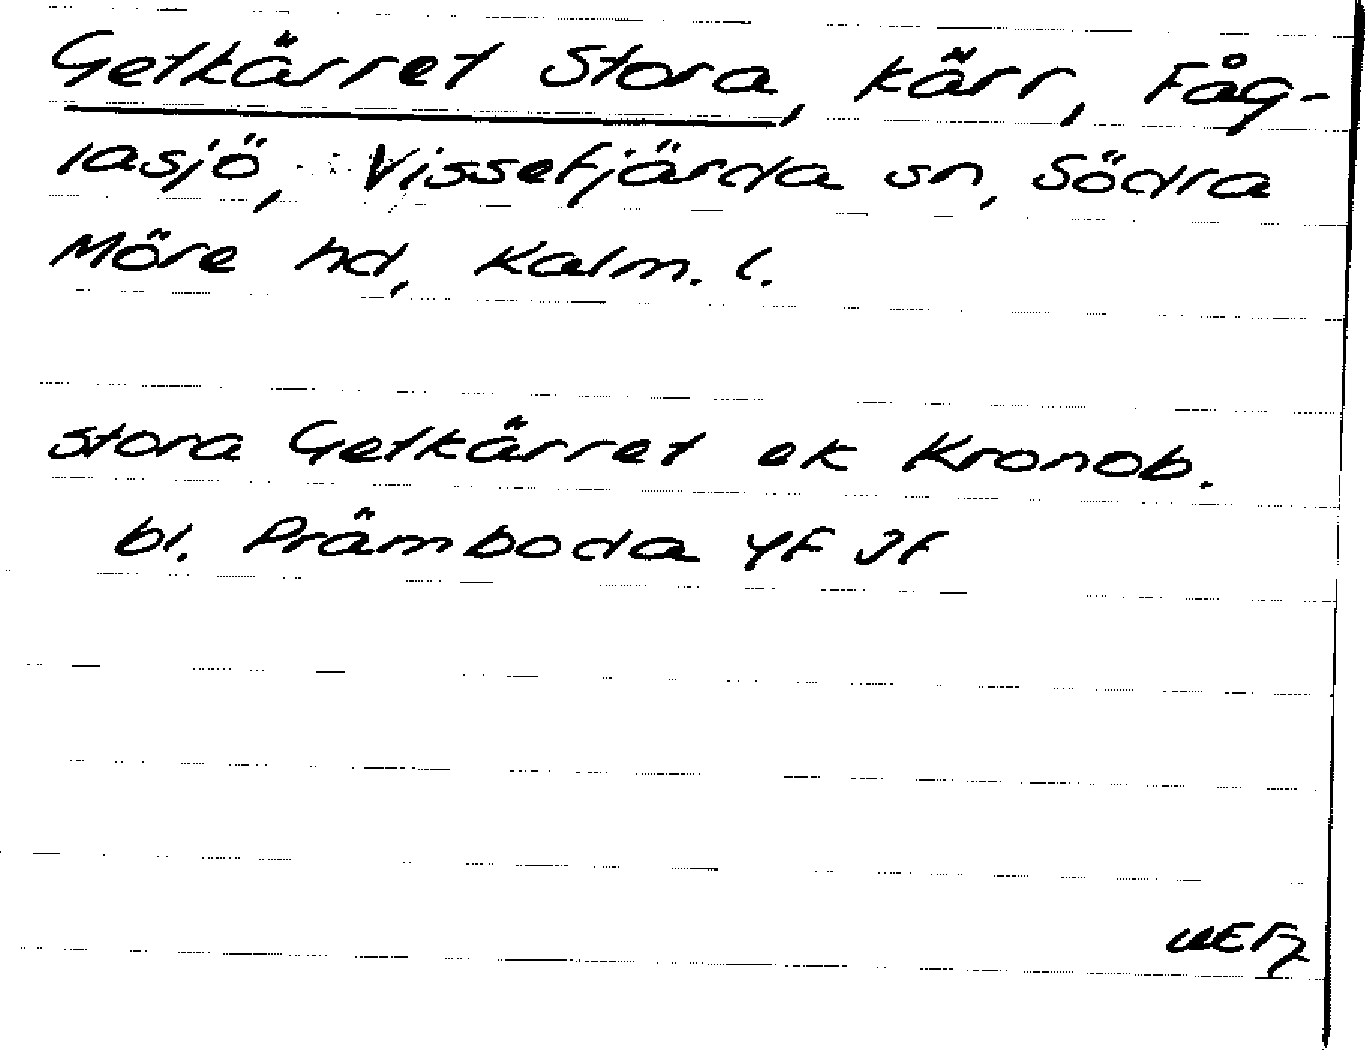 Getkärret Stora, kärr, Fåg-
lasjö, Vissefjärda sn, Södra
Möre hd, Kalm. l.
Stora Getkärret ek Kronob.
bl. Främboda